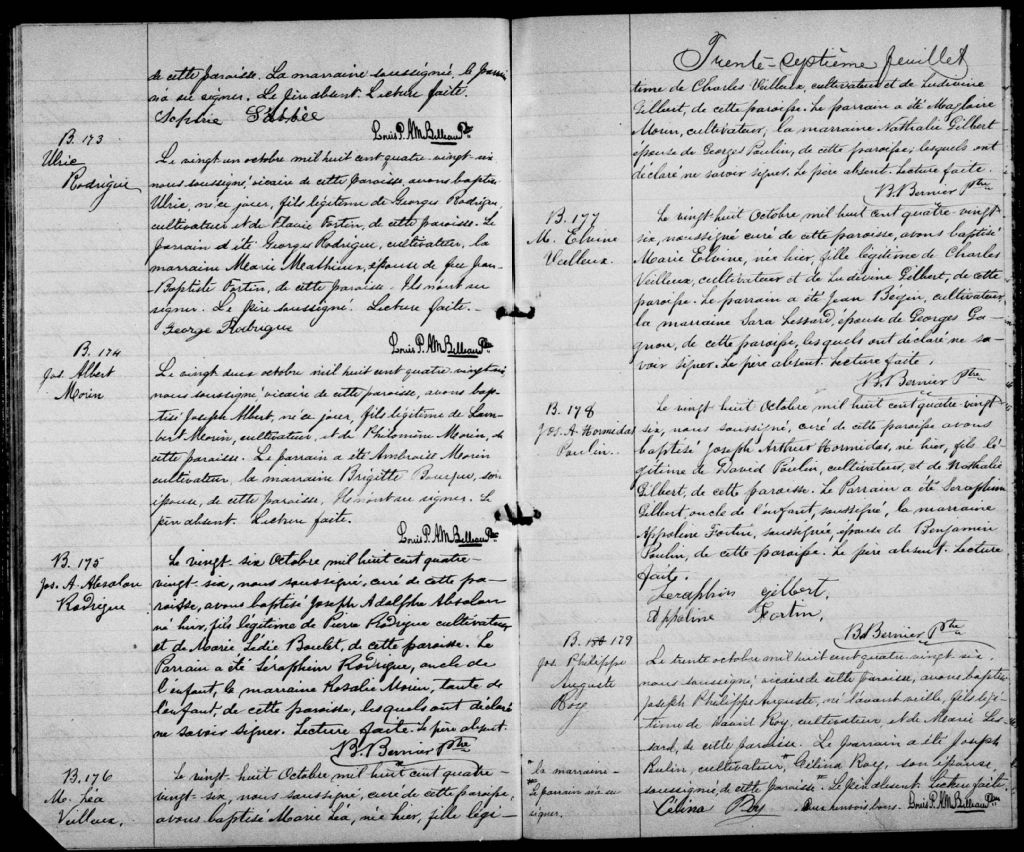 de cette paroisse. La marraine soussigné, le parrain
n'a su signer. Le père absent. Lecture faite.
Sophie Labbée
Louis P. A M. Billeau Ptre
B. 173
Ulric
Rodrigue
Le vingt un octobre mil huit cent quatre-vingt-six
nous soussigné, vicaire de cette paroisse, avons baptisé
Ulric, né ce jour, fils légitime de Georges Rodrigue,
cultivateur et de Flavie Fortin, de cette paroisse. Le
parrain a été Georges Rodrigue, cultivateur, la
marraine Marie Mathieux, épouse de feu Jean-
Baptiste Fortin, de cette paroisse. Ils n'ont su
signer. Le père soussigné. Lecture faite.-
George Rodrigue
Louis P. A M. Billeau Ptre
B. 174
Jos. Albert
Morin
Le vingt deux octobre mil huit cent quatre vingt six
nous soussigné, vicaire de cette paroisse, avons bap-
tisé Joseph Albert, né ce jour, fils légitime de Lam-
bert Morin, cultivateur, et de Philomène Morin, de
cette paroisse. Le parrain a été Ambroise Morin
cultivateur, la marraine Brigitte son
épouse, de cette paroisse, N'ont su signer. Le
père absent. Lecture faite.
Louis P. A M. Billeau Ptre
B. 175
Jos. A. Absolon
Rodrigue
Le vingt six Octobre mil huit cent quatre-
vingt-six, nous soussigné, curé de cette pa-
roisse, avons baptisé Joseph Adolphe Absolon
né hier, fils légitime de Pierre Rodrigue cultivateur
et de Marie Lédie Boulet, de cette paroisse. Le
Parrain a été Séraphin Rodrigue, oncle de
l'enfant, la marraine Rosalie Morin, tante de
l'enfant, de cette paroisse, lesquels ont déclaré
ne savoir signer. Lecture faite. Le père absent.
B. Bernier Ptre
B. 176
M. Léa
Veilleux.
Le vingt-huit Octobre mil huit cent quatre-
vingt-six, nous soussigné, curé de cette paroisse,
avons baptisé Marie Léa, née hier, fille légi-
Trente-septième feuillet
time de Charles Veilleux, cultivateur et de Ludivine
Gilbert, de cette paroisse. Le parrain a été Magloire
Morin, cultivateur, la marraine Nathalie Gilbert
épouse de Georges Poulin, de cette paroisse; lesquels ont
déclaré ne savoir signer. Le père absent. Lecture faite.
B. Bernier Ptre
B. 177
M. Elvine
Veilleux.
Le vingt-huit Octobre mil huit cent quatre vingt
six, noussigné curé de cette paroisse, avons baptisé
Marie Elvine, née hier, fille légitime de Charles
Veilleux, cultivateur et de Ludivine Gilbert, de cette
paroisse. Le parrain a été Jean Bégin, cultivateur,
la marraine Sara Lessard, épouse de Georges Ga-
gnon, de cette paroisse, lesquels ont déclaré ne sa-
voir signer. Le père absent. Lecture faite.
B. Bernier Ptre
B. 178
Jos. A. Hormidas
Poulin..
Le vingt huit Octobre mil huit cent quatre-vingt
six, nous soussigné, curé de cette paroisse avons
baptisé Joseph Arthur Hormidas, né hier, fils lé-
gitime de David Poulin, cultivateur, et de Nathalie
Gilbert, de cette paroisse. Le Parrain a été Seraphin
Gilbert, oncle de l'enfant, soussigné, la marraine
Appoline Fortin, soussignée, épouse de Benjamin
Poulin, de cette paroisse. Le père absent. Lecture
faite.
Seraphin Gilbert,
Appoline Fortin,
B. Bernier Ptre
B. 179
Jos. Philippe
Auguste
Roy
Le trente octobre mil huit cent quatre-vingt six.
nous soussigné, vicaire de cette paroisse, avons baptisé
Joseph Philippe Auguste, né l'avant veille, fils légi-
time de David Roy, cultivateur, et de Marie Les-
sard, de cette paroisse. Le parrain a été Joseph
Poulin, cultivateur, * Célina Roy, son épouse,
soussigné, de cette paroisse. * Le père absent. Lecture faite.
* la marraine -
* Le parrain n'a su
signer.
Célina Roy
Deux renvois bons. Louis P. A M. Billeau Ptre